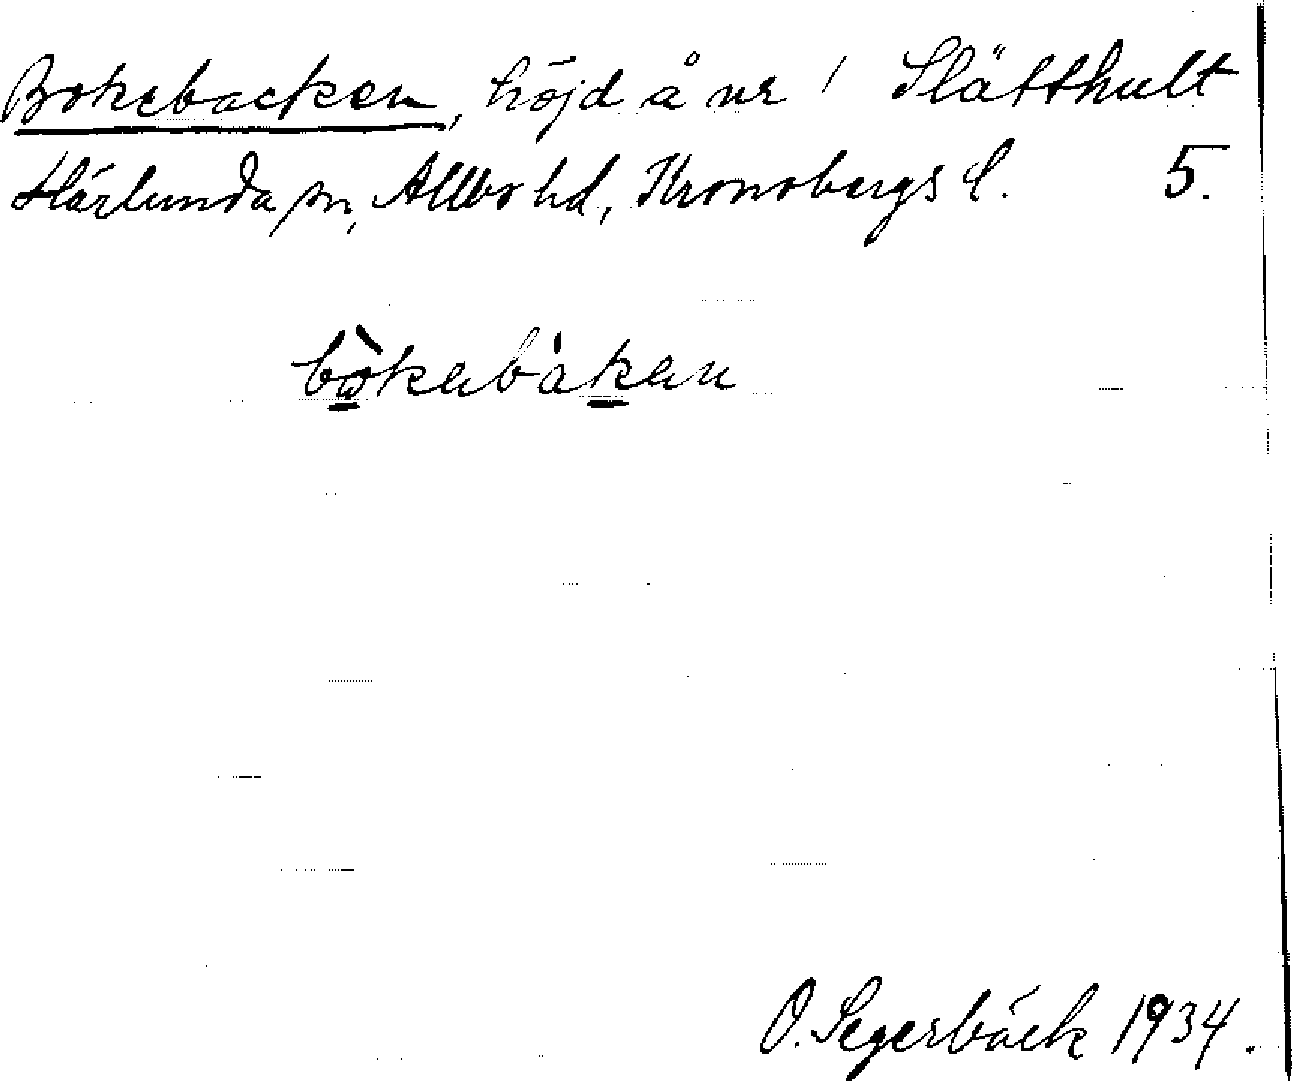 Bokebacken, höjd å nr 1 Slätthult
Härlunda sn, Allbo hd, Kronobergs l. 5.
bòkabákan
O. Segerbäck 1934.